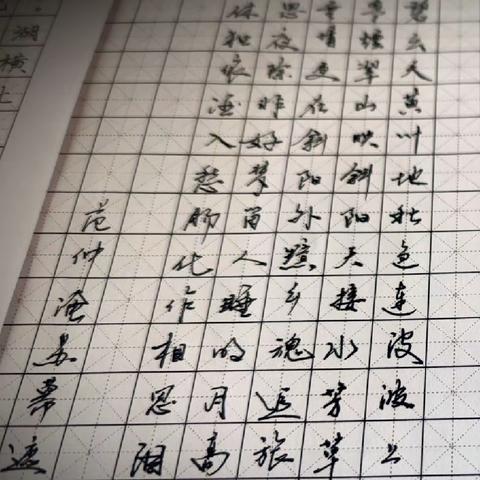 碧云天黄叶地秋色连波波上
寒烟翠山映斜阳天接水芳草
无情更在斜阳外黯乡魂追旅
思夜除非好梦留人睡明月高
休独依酒入愁肠化作相思泪
范仲淹苏幕遮
湖横